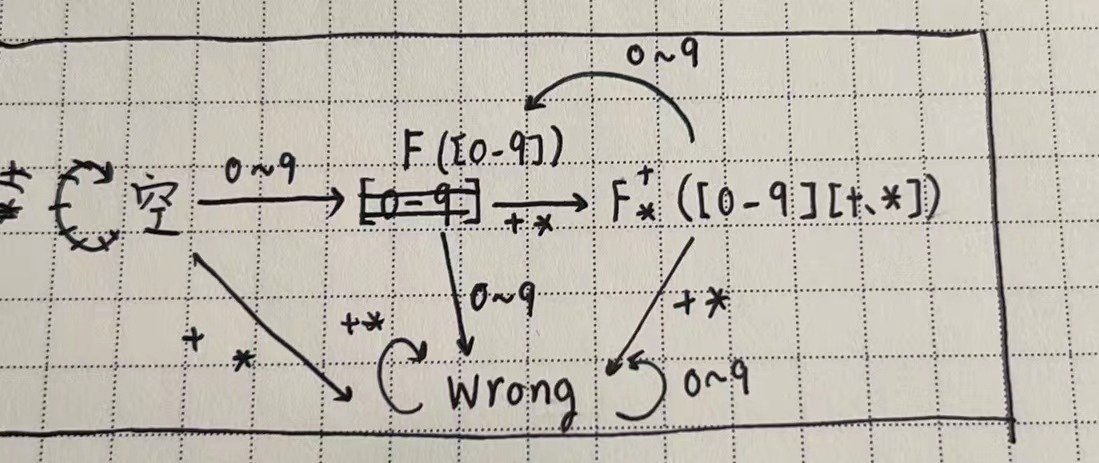 0~9
F([0-9])
+
*
空
0~9
+ *
F+* ([0-9][+、*])
0~9
+ *
+ *
+*
Wrong
0~9